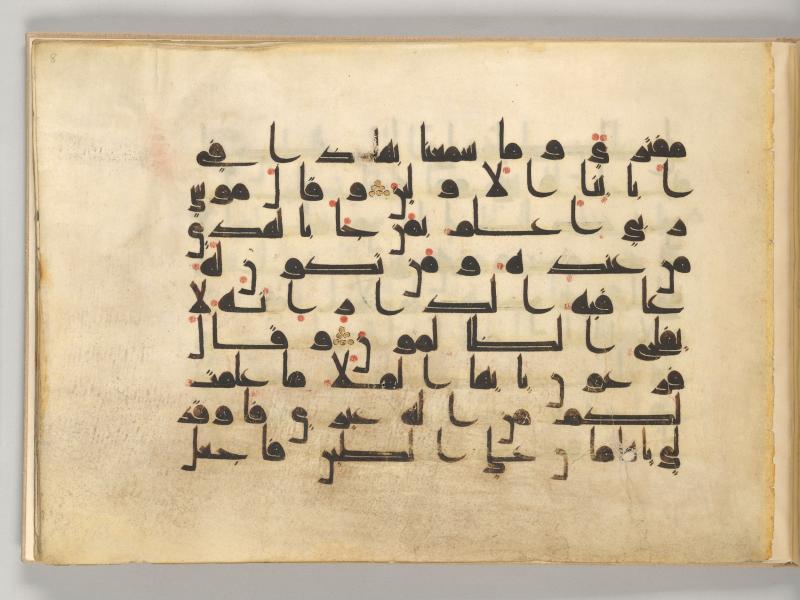 8
مفترى وما سمعنا بهذا في
ابائنا الاولين وقال موسى
ربي اعلم بمن جا بالهدى
من عنده ومن تكون له
عاقبه الدار انه لا
يفلح الظلمون وقال
فرعون يايها الملا ما علمت
لكم من اله غيري فاوقد
لي ياهامان على الطين فاجعل